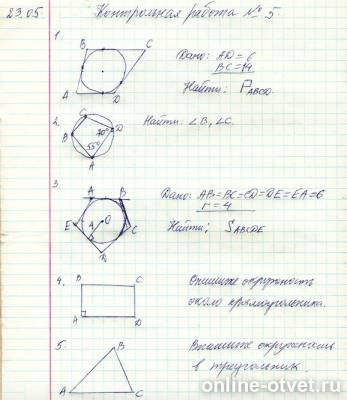 23.05. Контрольная работа № 5
1.
B C
A D
Дано: AD = 6
BC = 14
Найти: PABCD
2.
C
B D
70°
55°
A
Найти: ∠B, ∠C.
3.
A B
E O C
4
D
Дано: AB=BC=CD=DE=EA=6
r = 4
Найти: SABCDE
4.
B C
A D
Опишите окружность
около прямоугольника.
5.
B
A C
Впишите окружность
в треугольник.
online-otvet.ru